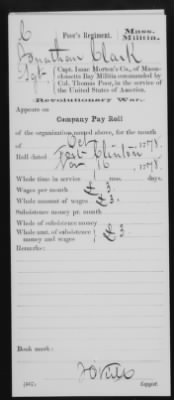 C
Poor's Regiment.
Mass. Militia.
Jonathan Clark
Sgt
Capt. Isaac Morton's Co., of Massa-
chusetts Bay Militia commanded by
Col. Thomas Poor, in the service of
the United States of America.
Revolutionary War.
Appears on
Company Pay Roll
of the organization named above, for the month
of Oct, 1778.
Fort Clinton
Roll dated Nov 6, 1778.
Whole time in service mos. days.
Wages per month £ 3
Whole amount of wages £ 3.
Subsistence money pr. month
Whole of subsistence money
Whole amt. of subsistence
money and wages £ 3
Remarks:
Book mark:
Copyist.